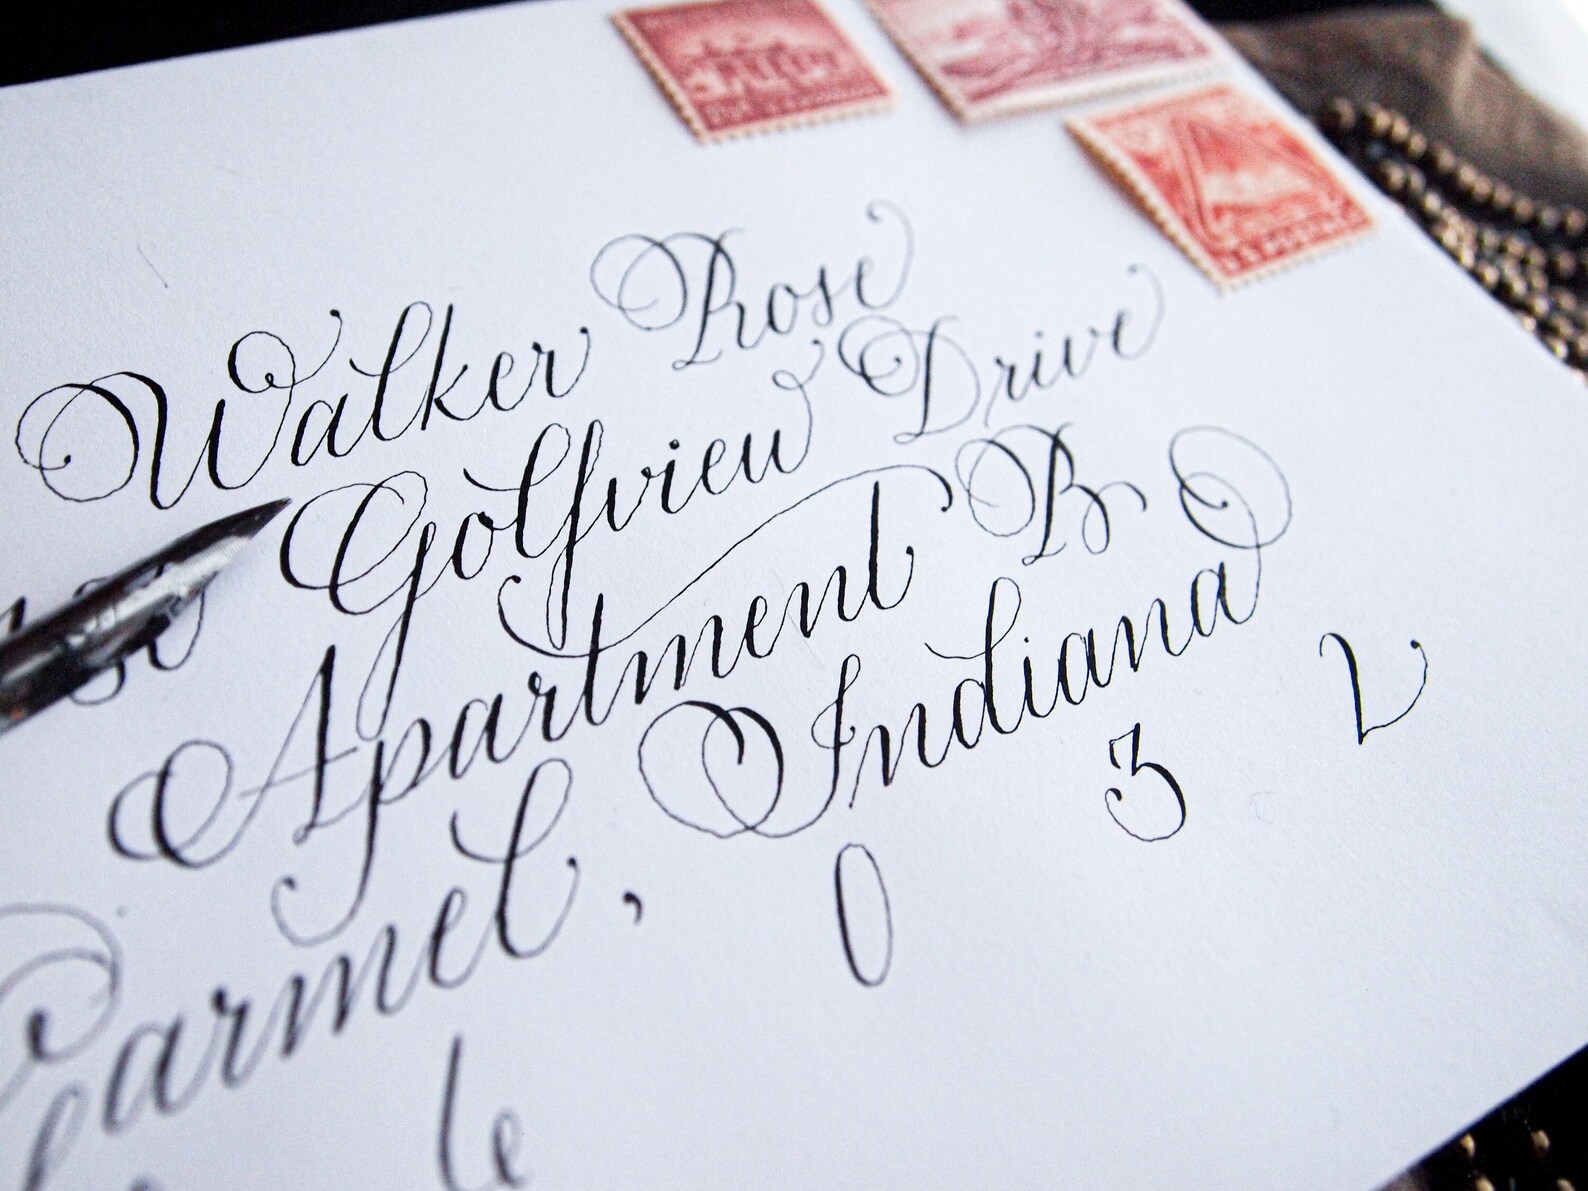 Walker Rose
Golfview Drive
Apartment B
Carmel, Indiana
6 0 3 2